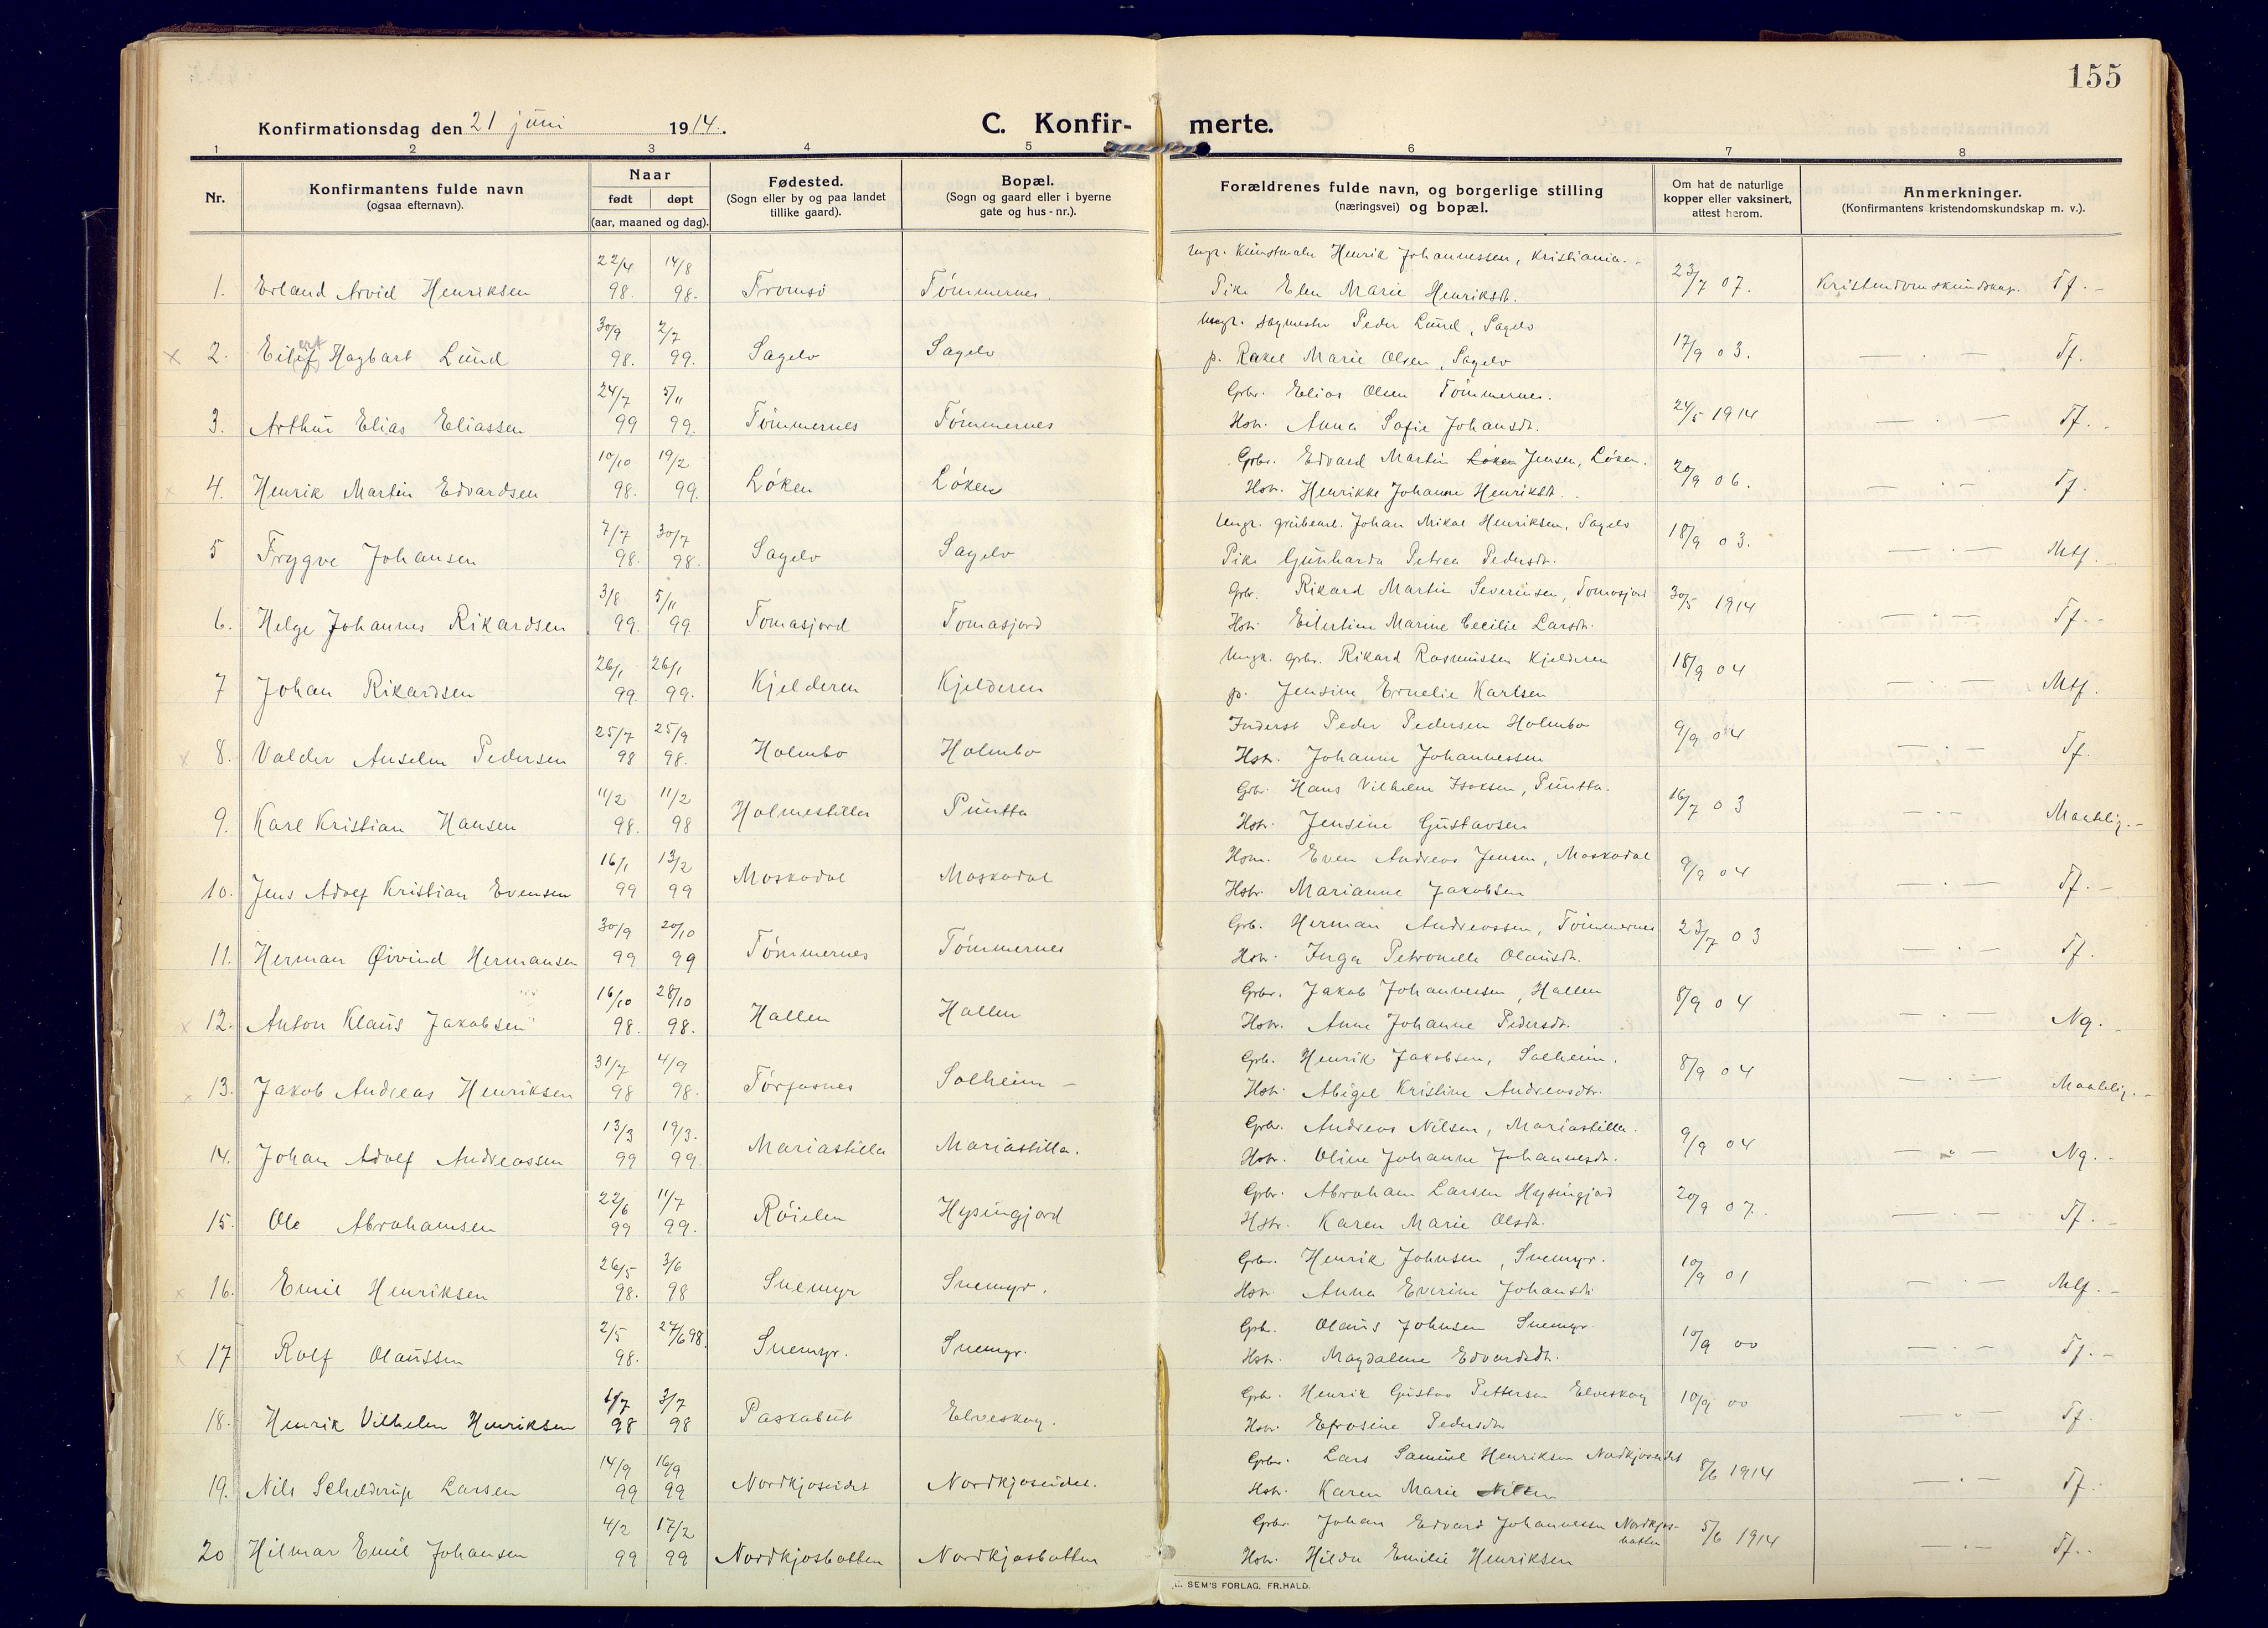 155
Konfirmationsdag den 21 juni 1914.
C. Konfir-
merte.
1 2 3 4 5 6 7 8
Nr.
Konfirmantens fulde navn
(ogsaa efternavn).
Naar
født døpt
(aar, maaned og dag).
Fødested.
(Sogn eller by og paa landet
tillike gaard).
Bopæl.
(Sogn og gaard eller i byerne
gate og hus - nr.).
Forældrenes fulde navn, og borgerlige stilling
(næringsvei) og bopæl.
Om hat de naturlige
kopper eller vaksinert,
attest herom.
Anmerkninger.
(Konfirmantens kristendomskundskap m. v.).
22/4 14/8 Ungk. Kunstmaler Henrik Johannessen, Kristiania.
1. Erland Arvid Henriksen 98. 98. Tromsö Tømmernes. Pike Elen Marie Henriksdt. 23/7 07. Kristendomskundskap. Tf.
30/9 2/7 Ungk. Peder Lund, Sagelv
x 2. Hagbart Lund 98. 99. Sagelv Sagelv p. Rakel Marie Olsen, Sagelv 17/9 03. — . — Tf.
24/7 5/11 Grbr. Elias Olsen Tømmernes.
3. Arthur Elias Eliassen 99 99. Tømmernes Tømmernes Hstr. Anna Sofie Johansdt. 24/5 1914 — . — Tf.
10/10 19/2 Grbr. Edvard Martin Løken Jensen, Løken.
x 4. Henrik Martin Edvardsen 98. 99. Løken Løken Hstr. Henrikke Johanne Henriksdt. 20/9 06. — . — Tf.
7/7 30/7 Ungk. grubearb. Johan Mikal Henriksen, Sagelv
5 Trygve Johansen 98. 98. Sagelv Sagelv Pike Gunharda Petrea Pedersdt. 18/9 03. — . — Mtf.
3/8 5/11 Grbr. Rikard Martin Severinsen, Tomasjord
6. Helge Johannes Rikardsen 99. 99. Tomasjord Tomasjord Hstr. Eilertine Marine Cecilie Larsdt. 30/5 1914 — . — Tf.
26/1 26/1 Ungk. grbr. Rikard Rasmussen Kjelderen
7 Johan Rikardsen 99 99. Kjelderen Kjelderen p. Jensine Ernelie Karlsen 18/9 04 — . — Mtf.
25/7 25/9 Inderst Peder Pedersen Holmbo
x 8. Valder Anselm Pedersen 98 98. Holmbo Holmbo Hstr. Johanne Johannessen 9/9 04 — . — Tf.
11/2 11/2 Grbr. Hans Vilhelm Isaksen, Puntta.
9. Karl Kristian Hansen 98. 98 Holmestilla Puntta Hstr. Jensine Gustavsen 16/7 03 — . — Maatelig.
16/1 13/2 Hom. Even Andreas Jensen, Moskodal
10. Jens Adolf Kristian Evensen 99 99 Moskodal Moskodal Hstr. Marianne Jakobsen 9/9 04 — . — Tf.
30/9 20/10 Grb. Herman Andreassen, Tømmernes
11. Herman Øivind Hermansen 99 99 Tømmernes Tømmernes Hstr. Inga Petronelle Olausdt. 23/7 03 — . — Tf.
16/10 28/10 Grbr. Jakob Johannessen, Hallen
x 12. Anton Klaus Jakobsen 98. 98. Hallen Hallen Hstr. Anne Johanne Pedersdt. 8/9 04 — . — Ng.
31/7 4/9 Grb. Henrik Jakobsen, Solheim.
x 13. Jakob Andreas Henriksen 98 98. Tørfosnes Solheim Hstr. Abigel Kristine Andreasdtr. 8/9 04 — . — Maatelig.
13/3 19/3. Grbr. Andreas Nilsen, Mariastilla.
14. Johan Adolf Andreassen 99 99. Mariastilla Mariastilla. Hstr. Oline Johanne Johannesdt. 9/9 04 — . — Ng.
22/6 11/7 Grbr. Abraham Larsen Hysingjord
15. Ole Abrahamsen 99 99. Røielen Hysingjord Hstr. Karen Marie Olsdt. 20/9 07. — . — Tf.
26/5 3/6 Grbr. Henrik Johnsen, Snemyr.
x 16. Emil Henriksen 98. 98 Snemyr Snemyr. Hstr. Anna Everine Johansdt. 10/9 01 — . — Mtf.
2/5 27/6 98. Grb. Olaus Johnsen Snemyr
x 17 Rolf Olaussen 98. Snemyr. Snemyr. Hstr. Magdalene Edvardsdt. 10/9 00 — . — Tf.
3/7 Grbr. Henrik Gustav Pettersen Elveskog
18. Henrik Vilhelm Henriksen 98 98 Paskabut Elveskog. Hstr. Efrosine Pedersdt. 10/9 00 — . — Tf.
14/9 16/9 Grbr. Lars Samuel Henriksen Nordkjoseidet
19. Nils Schelderup Larsen 99 99 Nordkjoseidet Nordkjoseidet. Hstr. Karen Marie Nilsen 8/6 1914 — . — Tf.
4/2 17/2 Grbr. Johan Edvard Johannessen Nordkjos-
botten
20 Hilmar Emil Johansen 99 99 Nordkjosbotten Nordkjosbotten Hstr. Hilda Emilie Henriksen 5/6 1914 — . — Tf.
SEM'S FORLAG, FR.HALD.